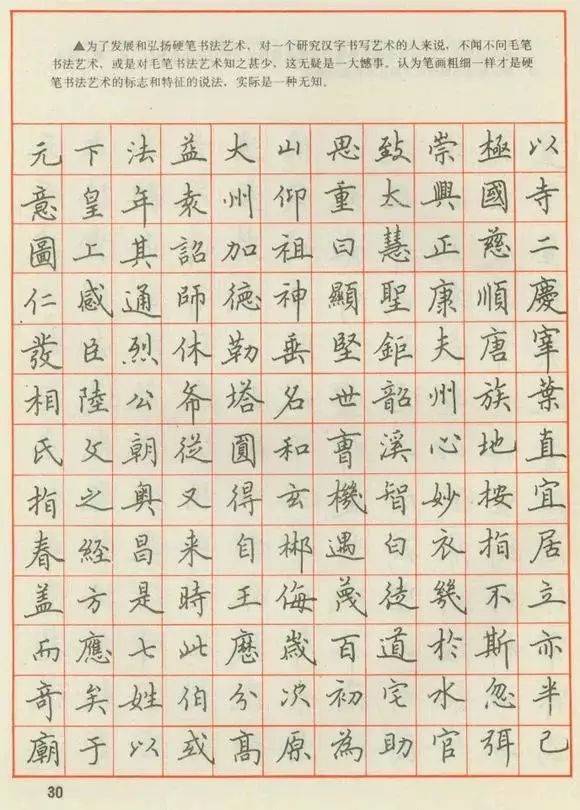 ▲为了发展和弘扬硬笔书法艺术，对一个研究汉字书写艺术的人来说，不闻不问毛笔
书法艺术，或是对毛笔书法艺术知之甚少，这无疑是一大憾事。认为笔画粗细一样才是硬
笔书法艺术的标志和特征的说法，实际是一种无知。
元下法益大山思致崇極以
意皇年袁州仰重太興國寺
圖上其詔加祖曰慧正慈二
仁感通師德神顯聖康順慶
發臣烈休勒垂堅鉅夫唐宰
相陸公希塔名世韶州族葉
氏文朝從圓和曹溪心地直
指之奥又得玄機智妙按宜
春經昌来自郴遇白衣指居
盖方是時王侮蔑徒幾不立
而應七此歷歲百道於斯亦
奇矣姓伯分次初宅水忽半
廟于以或高原為助官弭已
30